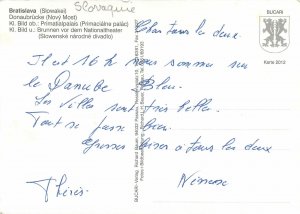 Bratislava (Slowakei)
Donaubrücke (Nový Most)
Kl. Bild ob.: Primatialpalais (Primaciálne palác)
Kl. Bild u.: Brunnen vor dem Nationaltheater
(Slovenské národné divadlo)
Slovaquie
BUCARI
Karte 2012
tous la deux.
Il est 16 h nous sommes sur
le Danube Bleu.
Les villes sont très belles
Tout se passe bien.
grosses bises à tous la deux